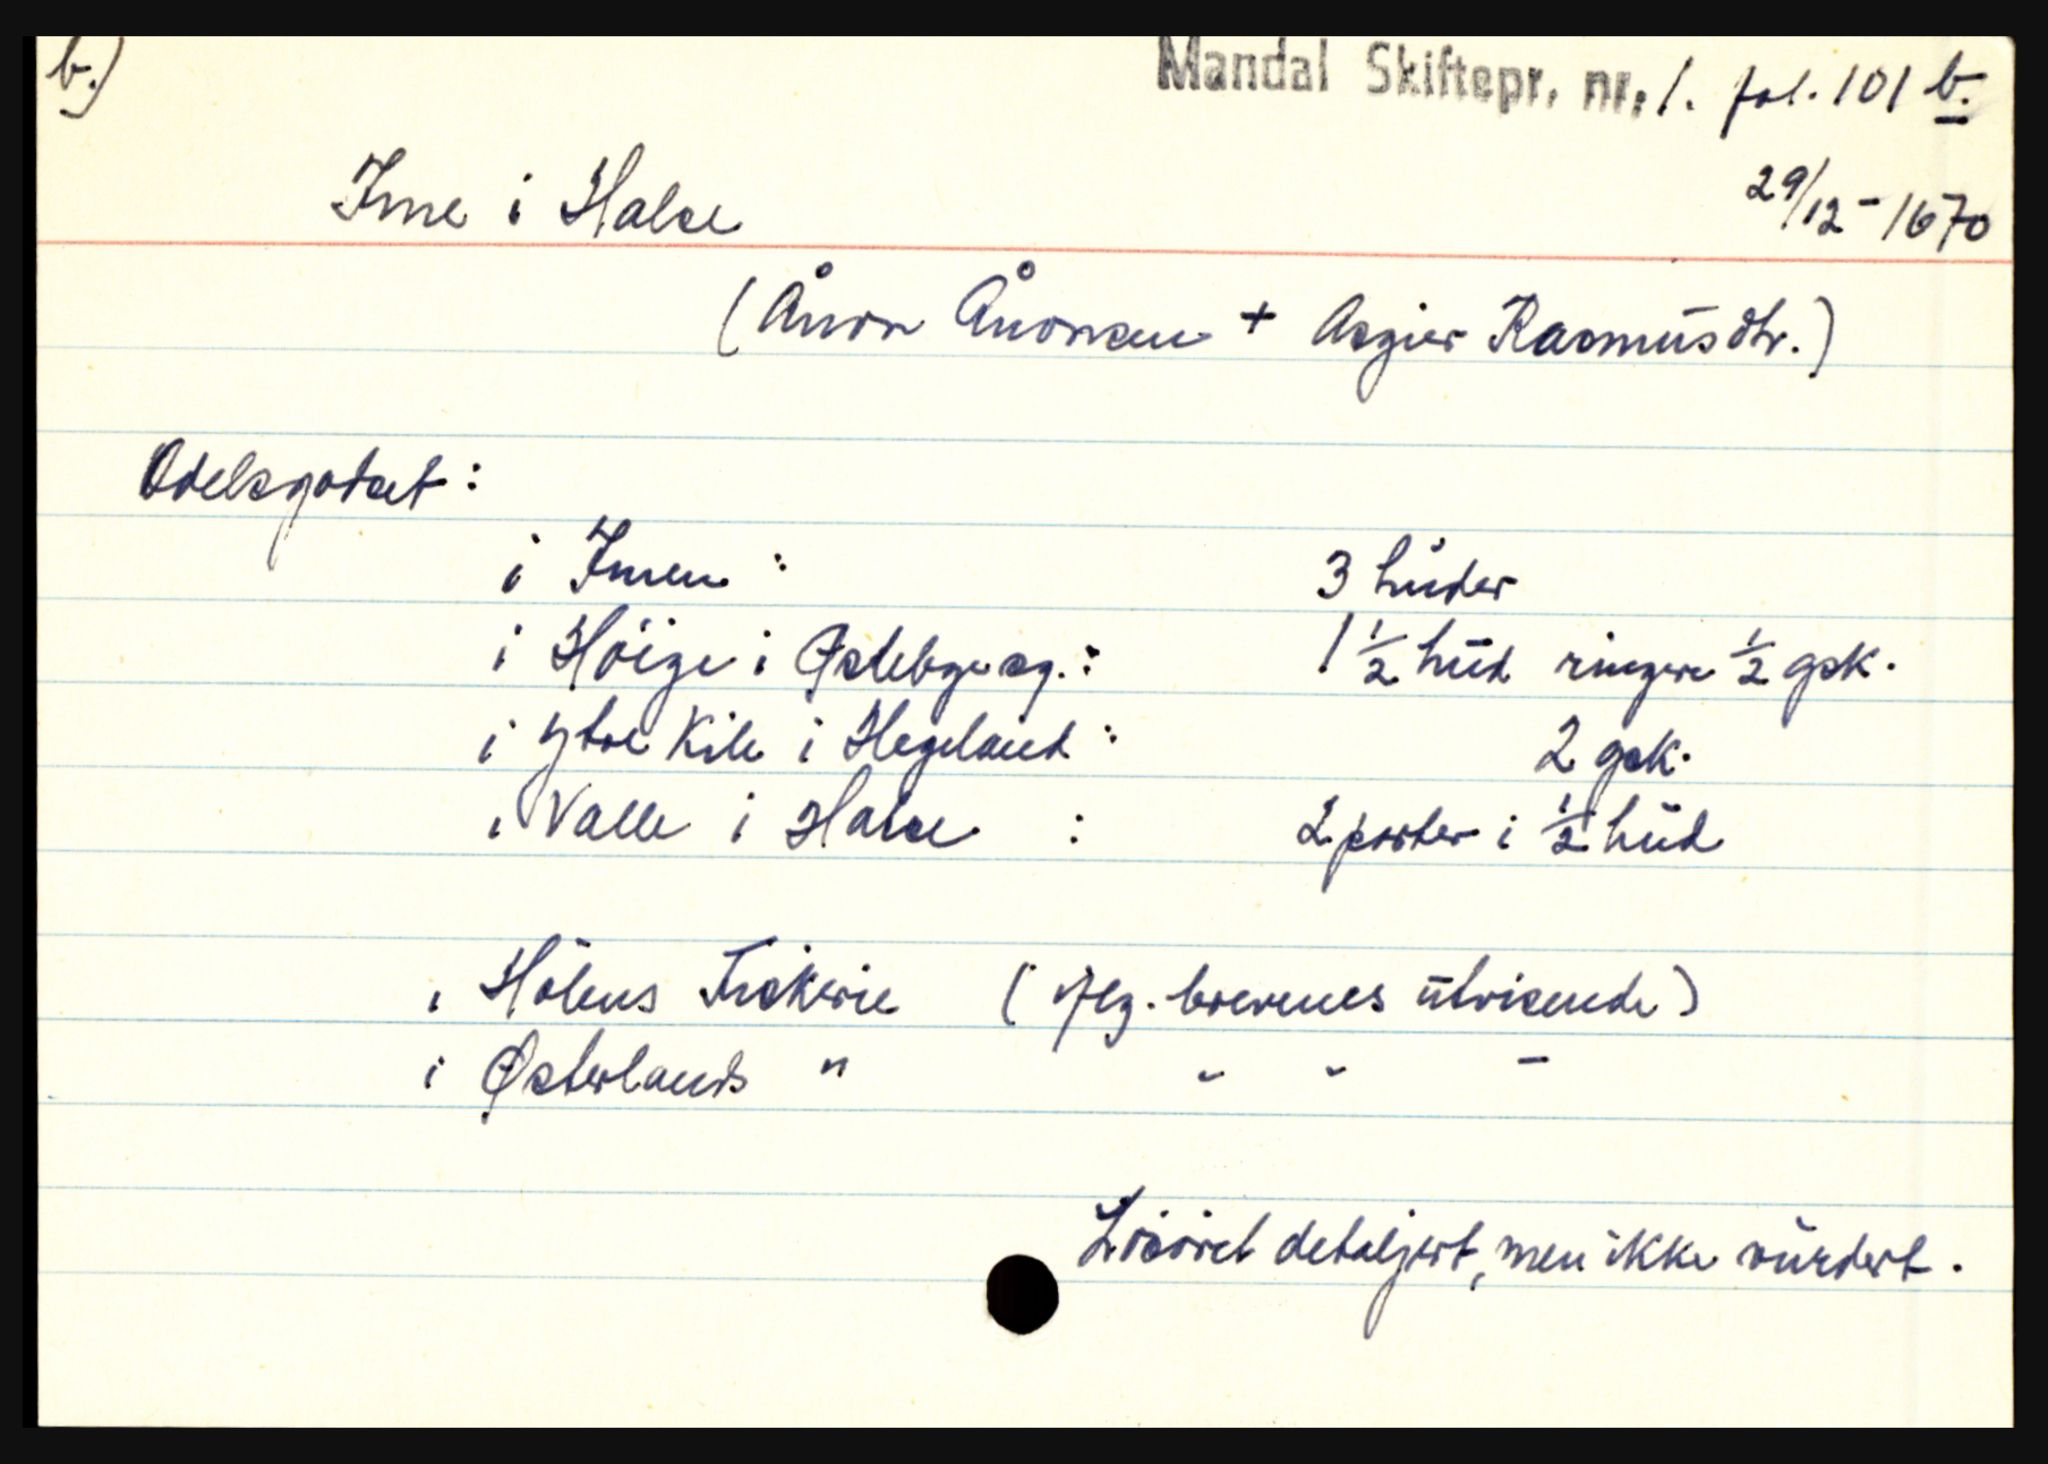 b.)
Mandal Skiftepr. nr. 1. fol. 101 b.
29/12 - 1670
Ime i Halse
(Ånon Ånonsen + Asgier Rasmusdtr.)
Odelsgodset:
i Imen : 3 huder
i Höige i Østebge sg. : 1 1/2 hud ringere 1/2 gsk.
i Ytre Kile i Hegeland : 2 gsk.
i Valle i Halse : 2 parter i 1/2 hud
i Hölens Fiskerie ( iflg. brevenes utvisende )
i Østerlands " " " "
Lösöret detaljert, men ikke vurdert.